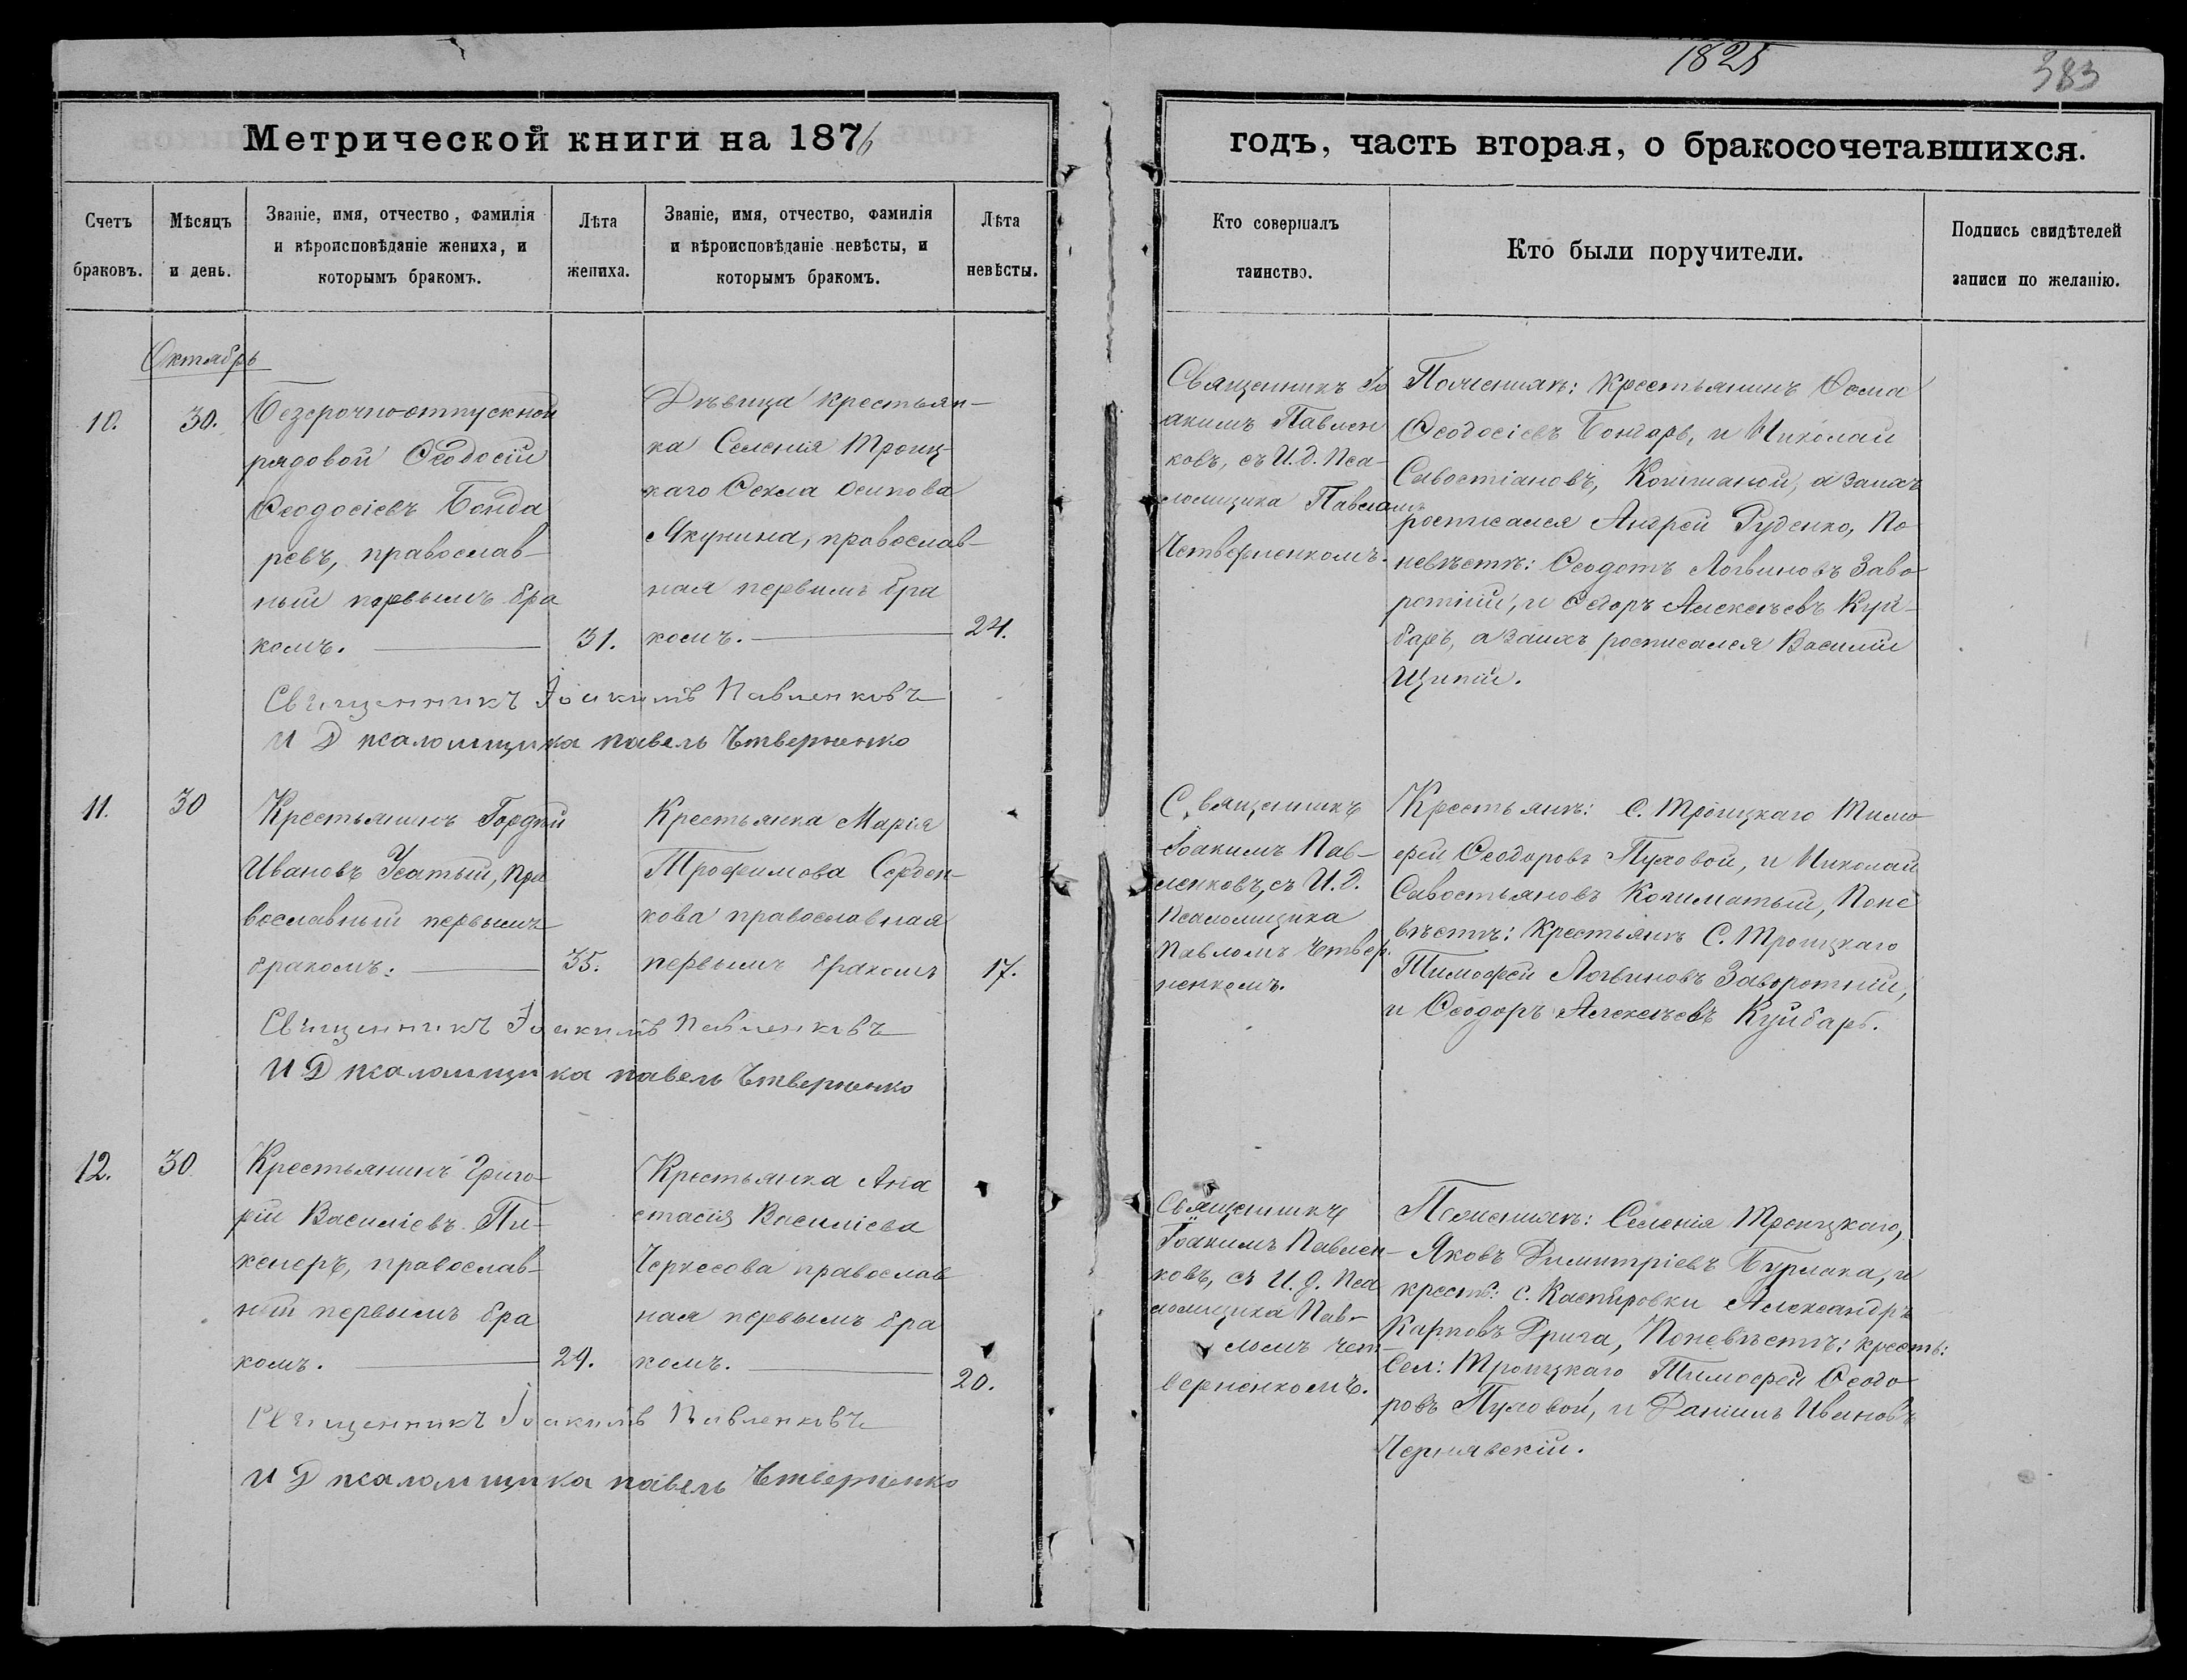 1825
383
Метрической книги на 1876
годъ, часть вторая, о бракосочетавшихся.
Счетъ браковъ.
Мѣсяцъ и день.
Званіе, имя, отчество, фамилія
и вѣроисповѣданіе жениха, и
которымъ бракомъ.
Лѣта жениха.
Званіе, имя, отчество, фамилія
и вѣроисповѣданіе невѣсты, и
которымъ бракомъ.
Лѣта невѣсты.
Кто совершалъ
таинство.
Кто были поручители.
Подпись свидѣтелей
записи по желанію.
Октябрь
10.
30.
Безсрочно-отпускной
рядовой Ѳеодосій
Ѳеодосіевъ Бонда
ревъ, православ-
ный первымъ бра
комъ.
31.
Дѣвица крестьян-
ка Селенія Троиц-
каго Ѳекла Осипова
Якунина, православ-
ная первымъ бра
комъ.
24.
Священникъ Іо
акимъ Павлен
ковъ, съ И.д. Пса-
ломщика Павлом
Четверненкомъ.
По женихѣ: крестьянинъ Ѳома
Ѳеодосіевъ Бондарь, и Николай
Савостіановъ, а за нихъ
росписался Андрей Руденко, По
невѣстѣ: Ѳеодотъ Логвиновъ Заво
ротній, и Ѳедоръ Алексѣевъ Куй-
баръ, а за нихъ росписался Василій
Щипій.
Священникъ Іоакимъ Павленковъ
И Д псаломщика павелъ Четверненко
11.
30
Крестьянинъ Гордѣй
Ивановъ Усатый, пра
вославный первымъ
бракомъ:
35.
Крестьянка Марія
Трофимова Серден-
кова православная
первымъ бракомъ
17.
Священникъ
Іоакимъ Пав-
ленковъ, съ И.д.
Псаломщика
Павломъ Четвер.
ненкомъ.
Крестьянѣ: С. Троицкаго Тимо
фей Ѳеодоровъ Пуховой, и Николай
Савостьяновъ Копиматый, Поне
вѣстѣ: Крестьянѣ С. Троицкаго
Тимофей Логвиновъ Заворотній,
и Ѳеодоръ Алексѣевъ Куйбаръ.
Священникъ Іоакимъ Павленковъ
И Д псаломщика павелъ Четверненко
12.
30
Крестьянинъ Григо-
рій Василіевъ Пи-
кенеръ, православ-
ный первымъ бра
комъ.
29.
Крестьянка Ана
стасія Василіева
Черкесова православ
ная первымъ бра
комъ.
20.
Священникъ
Іоакимъ Павлен-
ковъ, съ И.д. Пса
ломщика Пав-
ломъ Чет-
верненкомъ.
По женихѣ: Селенія Троицкаго,
Яковъ Димитріевъ Бурлака, и
крестъ: с. Каспировки Александръ
Карповъ Грига, Поневѣстѣ: кресть:
Сел: Троицкаго Тимофей Ѳеодо
ровъ Пуховой, и Даніилъ Ивановъ
Чернявскій.
Священникъ Іоакимъ Павленковъ
И Д псаломщика павелъ Четверненко